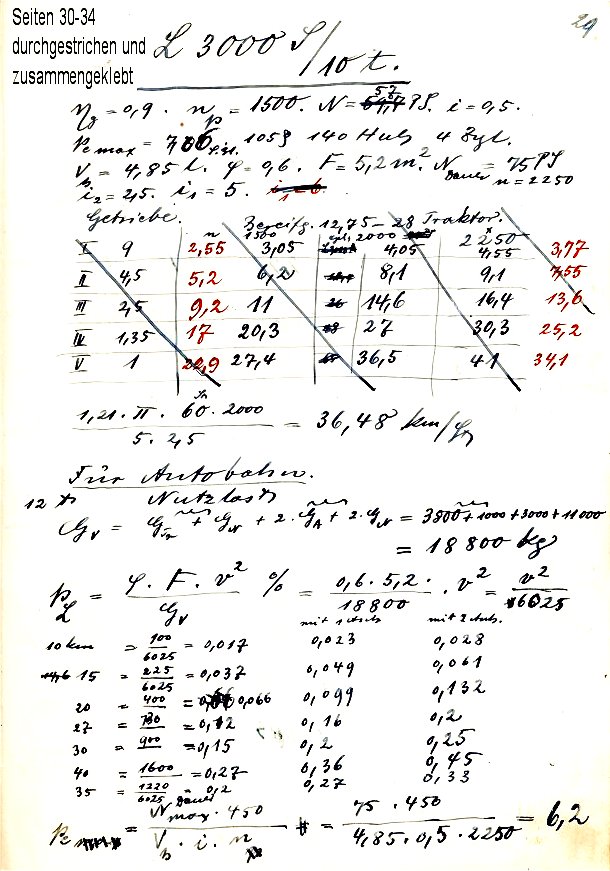 Seiten 30-34
durchgestrichen und
zusammengeklebt
29
L 3000 S/10 t.
η = 0,9 . n = 1500. N = 57 PS. i = 0,5.
p e max = 1059 140 Hub 4 Zyl.
V = 4,85 l. φ = 0,6. F = 5,2 m². N Dauer = 75 PS
n = 2250
i₂ = 2,5. i₁ = 5.
Getriebe. Bereifg. 12,75 – 28 Traktor.
n 1500 2000 2250
I 9 2,55 3,05 4,05 4,55 3,77
II 4,5 5,2 6,2 8,1 9,1 7,55
III 2,5 9,2 11 14,6 16,4 13,6
IV 1,35 17 20,3 27 30,3 25,2
V 1 22,9 27,4 36,5 41 34,1
1,21 · π · 60 · 2000 / 5 · 2,5 = 36,48 km/
Für Autobahn.
12 t Nutzlast
G = G + G + 2 · G + 2 · G = 3800 + 1000 + 3000 + 11000
= 18 800 kg
p = φ · F · v² / G % = 0,6 · 5,2 · / 18800 · v² = v² / 6025
10 km = 100/6025 = 0,017 0,023 0,028
15 = 225/6025 = 0,037 0,049 0,061
20 = 400 = 0,066 0,099 0,132
27 = 730 = 0,12 0,16 0,2
30 = 900 = 0,15 0,2 0,25
40 = 1600 = 0,27 0,36 0,45
35 = 1220/6025 = 0,2 0,27 0,33
p e = N Dauer max · 450 / V · i · n = 75 · 450 / 4,85 · 0,5 · 2250 = 6,2